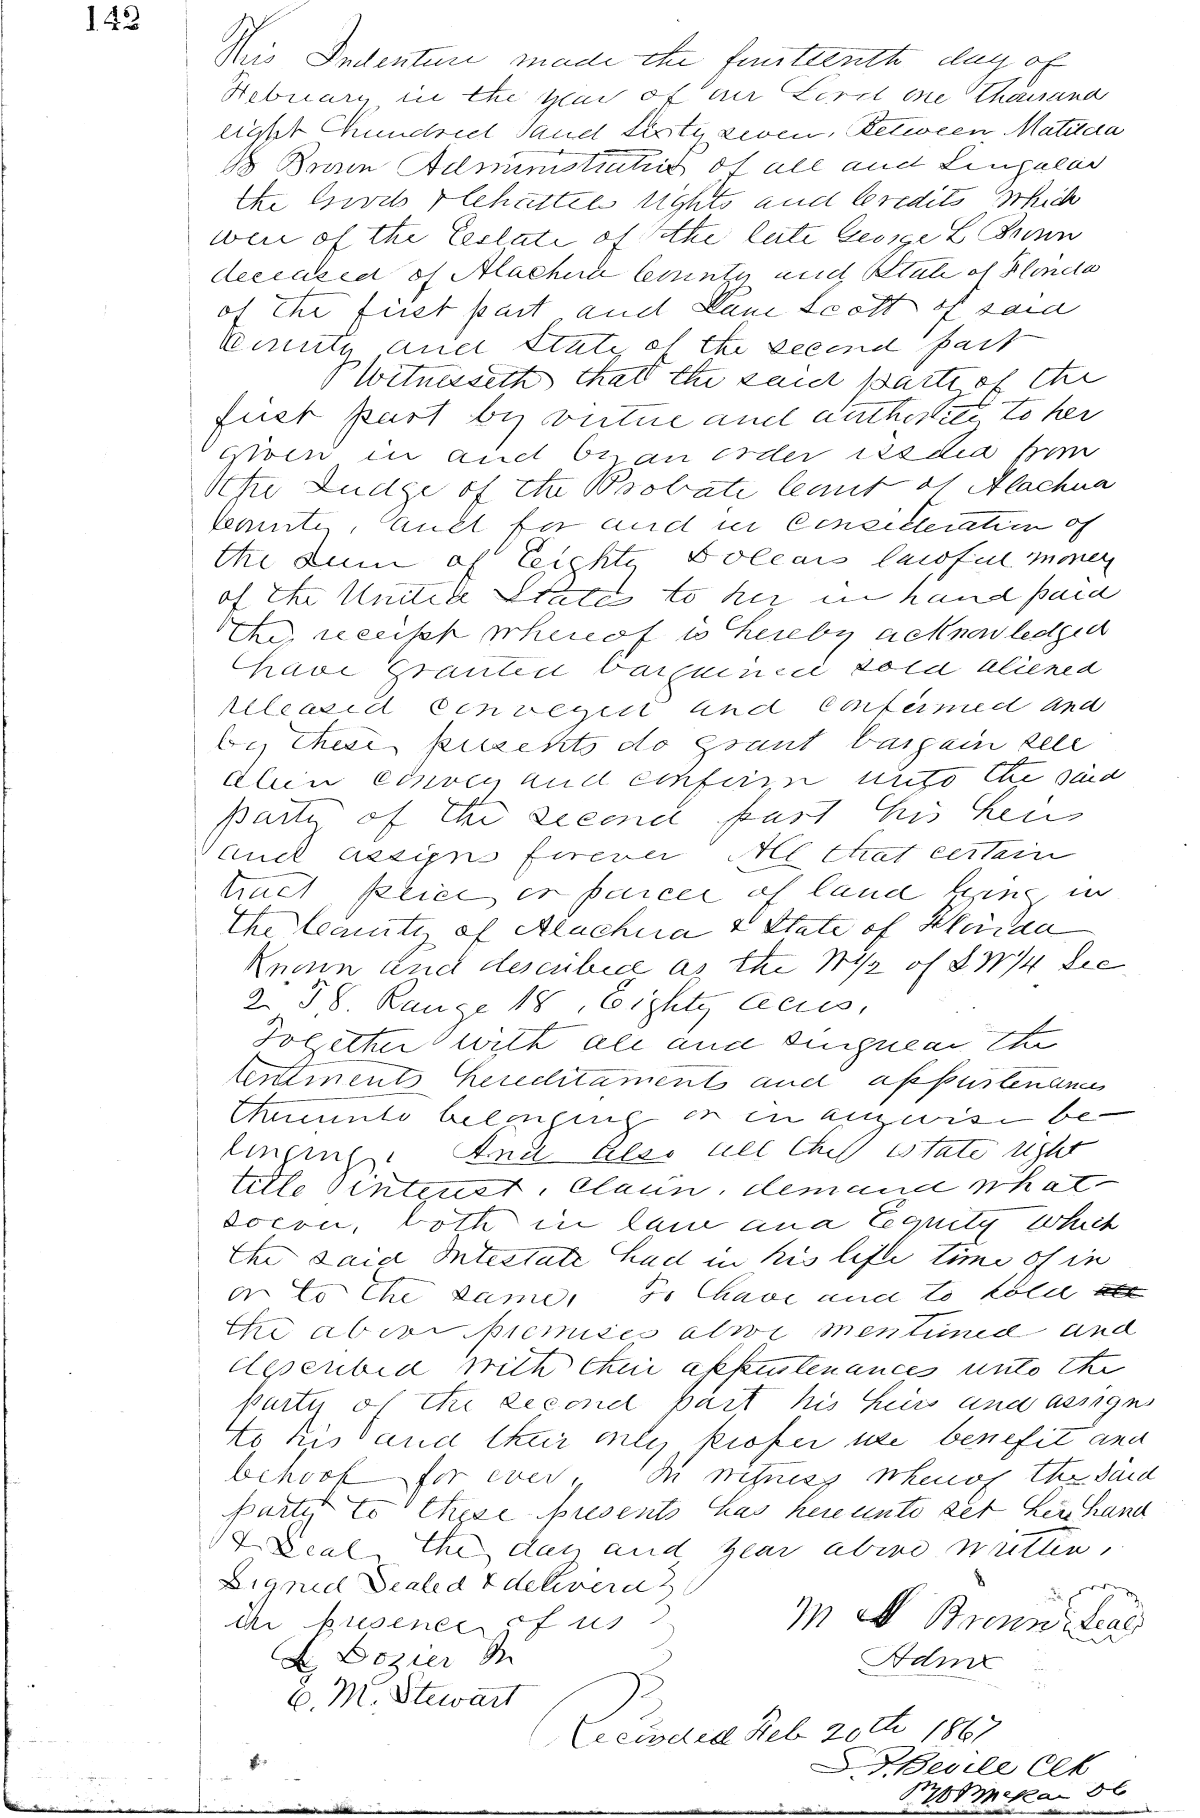 142
This Indenture made the fourteenth day of
February in the year of our Lord one thousand
eight hundred and Sixty seven, Between Matilda
Brown Administratrix of all and Singular
the Goods & Chattels rights and Credits which
were of the Eestate of the late George L Brown
deceased of Alachua County and State of Florida
of the first part and Lane Scott of said
County and State of the second part
Witnesseth that the said party of the
first part by virtue and authority to her
given in and by an order issued from
the Judge of the Probate Court of Alachua
County, and for and in Consideration of
the sum of Eeighty Dollars lawful money
of the United States to her in hand paid
the receipt whereof is hereby acknowledged
have granted bargained sold aliened
released conveyed and confirmed and
by these presents do grant bargain sell
alien convey and confirm unto the said
party of the second part his heirs
and assigns forever All that certain
tract peice or parcel of land lying in
the County of Alachua & State of Florida
Known and described as the W 1/2 of S W 1/4 Sec
2 T. 8. Range 18, Eighty acres,
Together with all and singular the
tentments hereditaments and appurtenances
thereunto belonging or in anywise be-
longing, And also all the estate right
title interest, claim, demand what-
soever, both in law and Equity which
the said Intestate had in his life time of in
or to the same, To have and to hold all
the above premises above mentioned and
described with their appurtenances unto the
party of the second part his heirs and assigns
to his and their only proper use benefit and
behoof for ever, In witness whereof the said
party to these presents has hereunto set her hand
& Seal the day and year above written,
Signed Sealed & delivered
in presence of us
M Brown Seal
L Dozier
Admx
E. M. Stewart
Recorded Feb 20th 1867
S. F. Bevile Clk